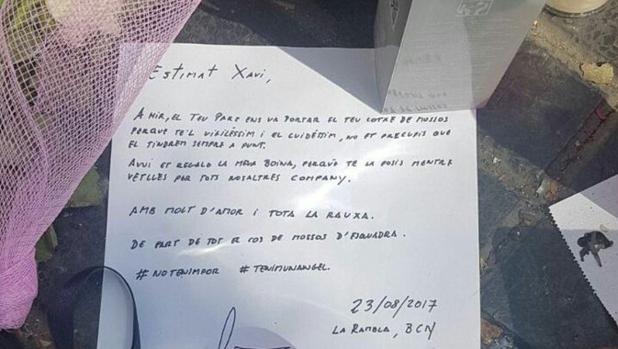 Estimat Xavi,
Ahir, el teu pare ens va portar el teu cotxe de mossos
perquè te'l vigiléssim i el cuidéssim, no et preocupis que
el tindrem sempre a punt.
Avui et regalo la meva boina, perquè te la posis mentre
vetlles per tots nosaltres company.
Amb molt d'amor i tota la rauxa.
De part de tot el cos de Mossos d'Esquadra.
#notenimpor #tenimunangel.
23/08/2017
La Rambla, BCN